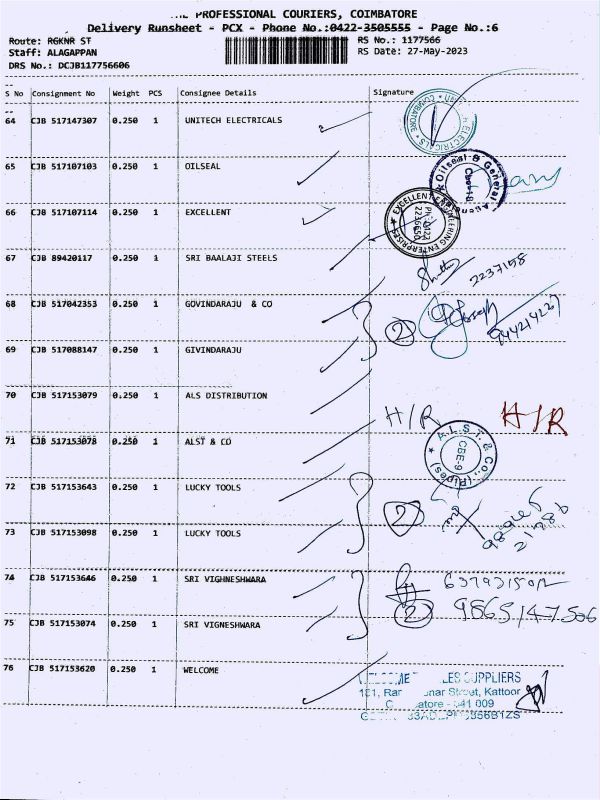 PROFESSIONAL COURIERS, COIMBATORE
Delivery Runsheet - PCX - Phone No.:0422-3505555 - Page No.:6
Route: RGKNR ST
RS No.: 1177566
Staff: ALAGAPPAN
RS Date: 27-May-2023
DRS No.: DCJB117756606
S No Consignment No Weight PCS Consignee Details Signature
64 CJB 517147307 0.250 1 UNITECH ELECTRICALS
65 CJB 517107103 0.250 1 OILSEAL
Oilseal & General
66 CJB 517107114 0.250 1 EXCELLENT
EXCELLENT ENGINEERING ENTERPRISES
67 CJB 89420117 0.250 1 SRI BAALAJI STEELS
2237158
68 CJB 517042353 0.250 1 GOVINDARAJU & CO
2
69 CJB 517088147 0.250 1 GIVINDARAJU
70 CJB 517153079 0.250 1 ALS DISTRIBUTION
H/R H/R
71 CJB 517153078 0.250 1 ALST & CO
A.L.S.T. & Co., (Pipes)
CBE-9
72 CJB 517153643 0.250 1 LUCKY TOOLS
2
73 CJB 517153098 0.250 1 LUCKY TOOLS
74 CJB 517153646 0.250 1 SRI VIGHNESHWARA
2
9865147506
75 CJB 517153074 0.250 1 SRI VIGNESHWARA
76 CJB 517153620 0.250 1 WELCOME
SUPPLIERS
Kattoor